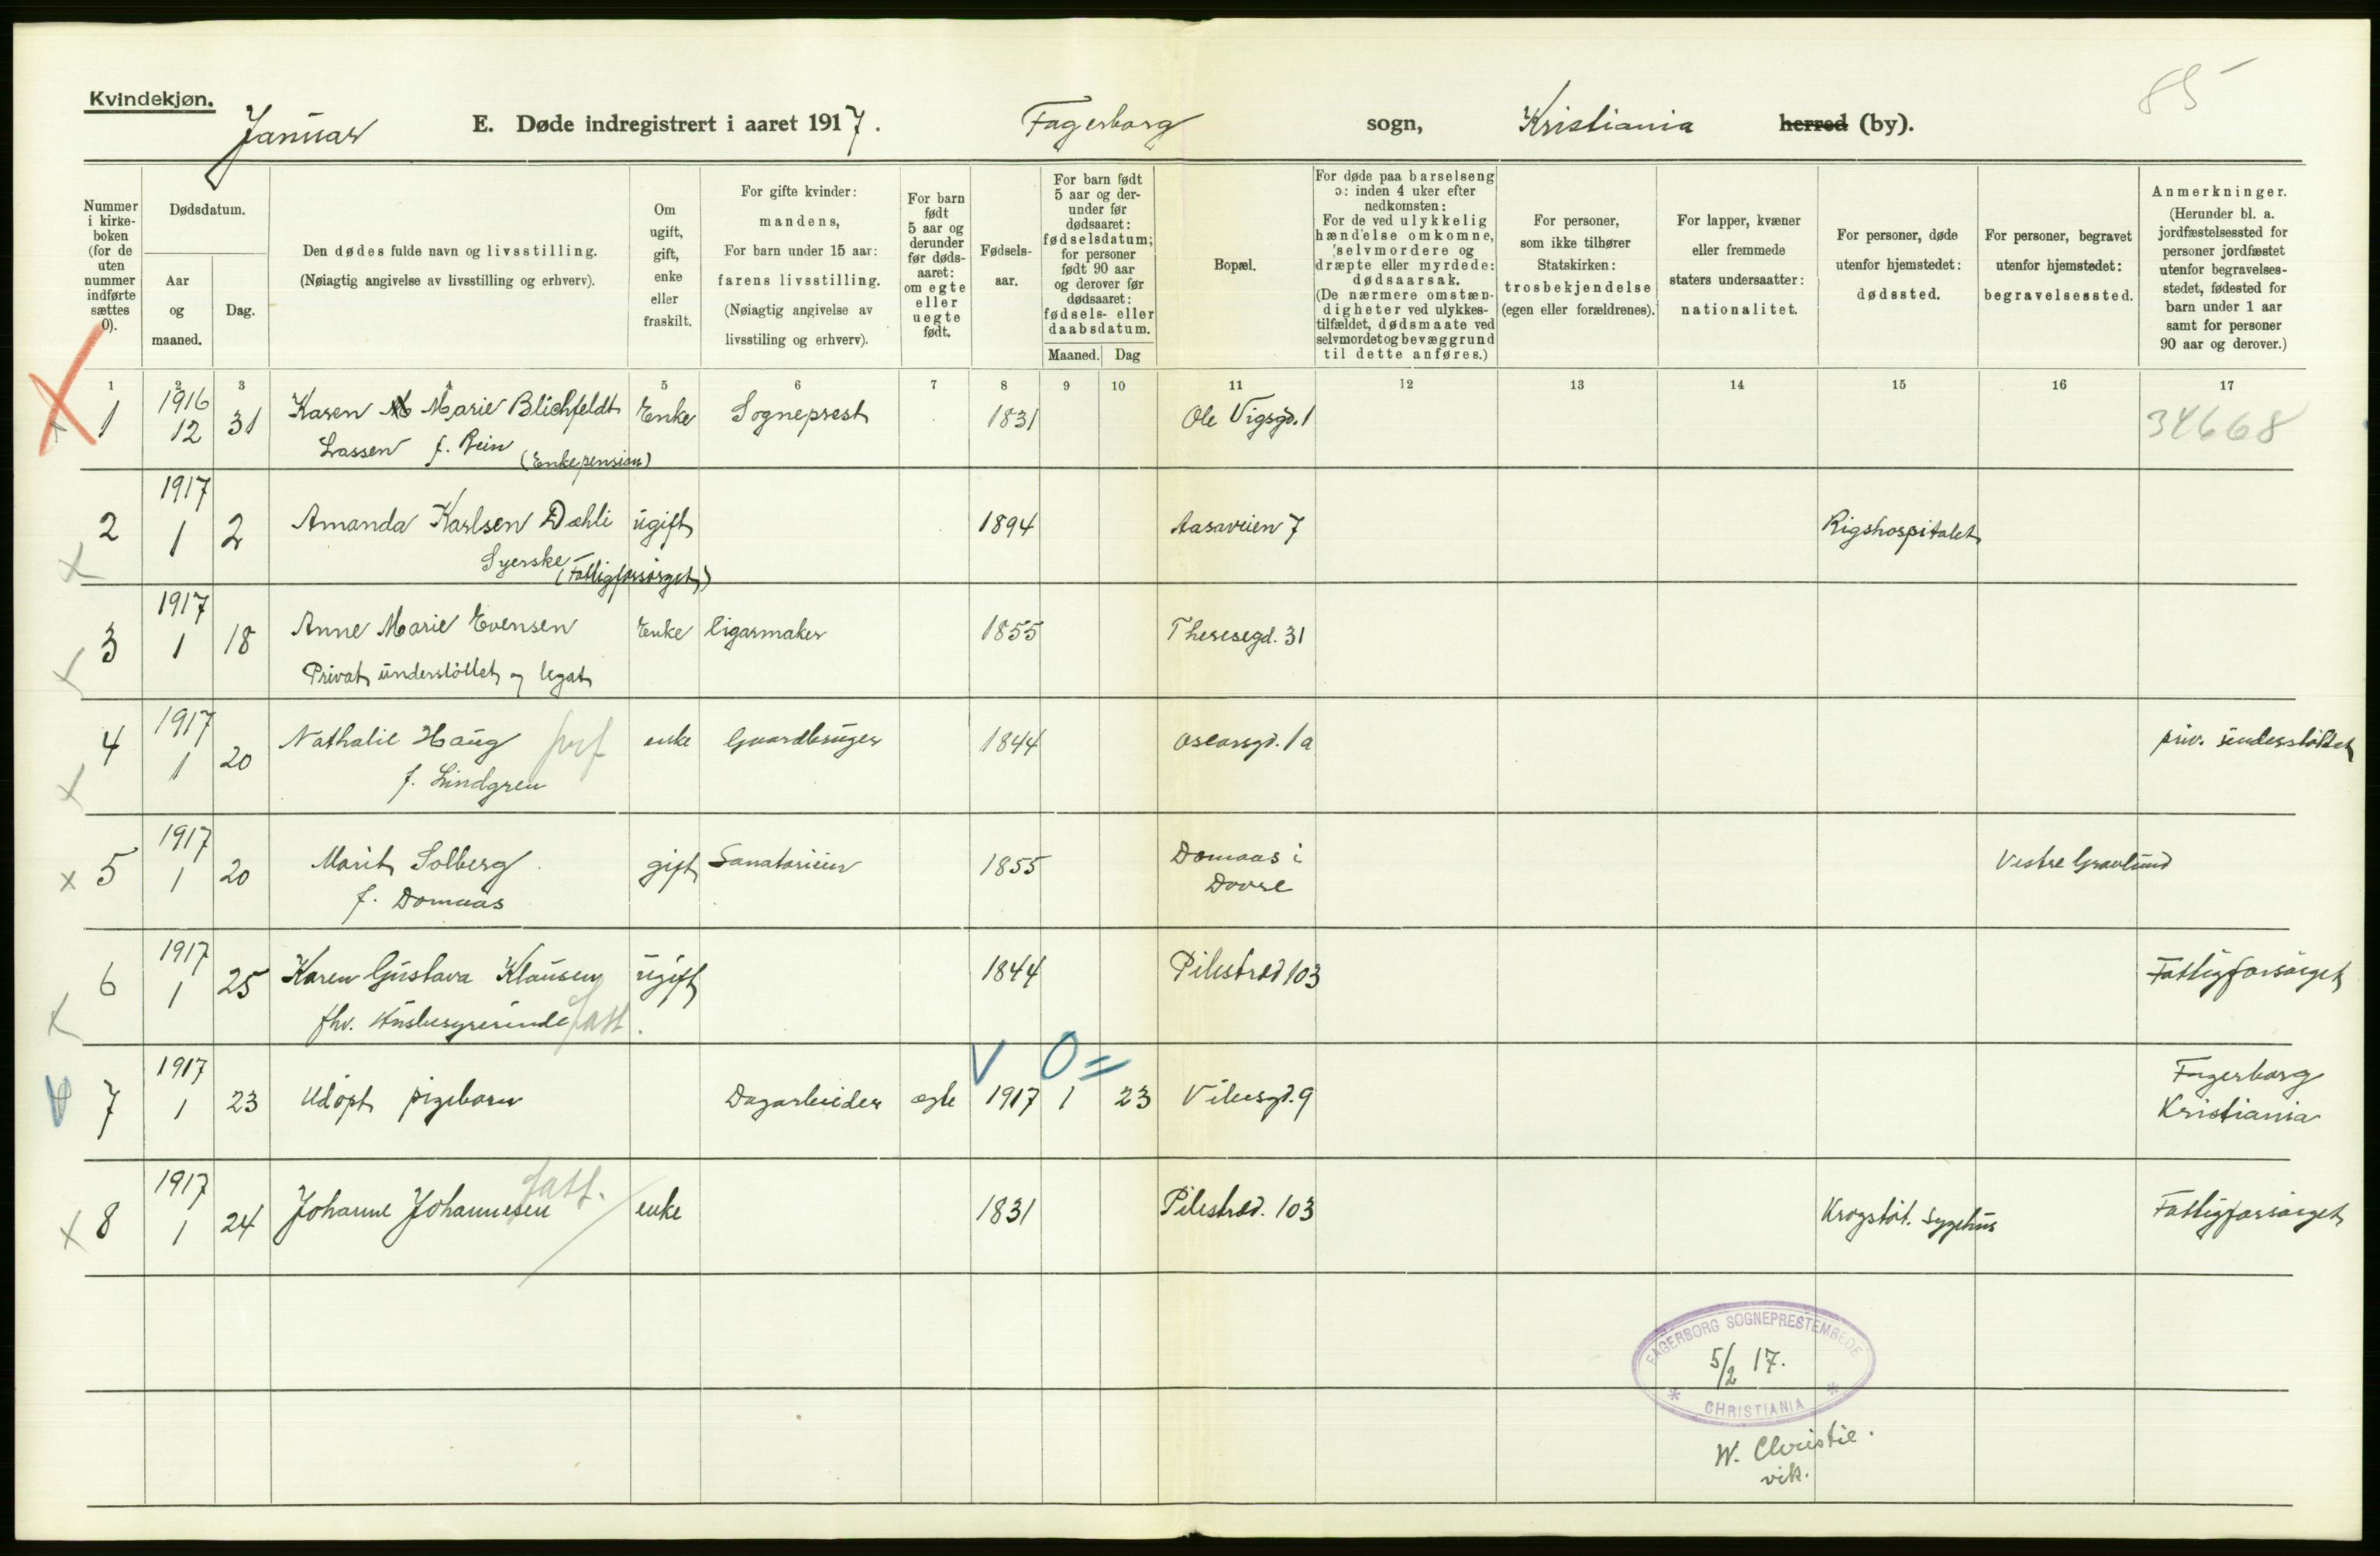 85
Kvindekjøn.
Januar E. Døde indregistrert i aaret 1917. Fagerborg sogn, Kristiania herred (by).
Nummer i kirkeboken (for de uten nummer indførte sættes 0).
Dødsdatum.
Aar og maaned.
Dag.
Den dødes fulde navn og livsstilling.
(Nøiagtig angivelse av livsstilling og erhverv).
Om ugift, gift, enke eller fraskilt.
For gifte kvinder: mandens,
For barn under 15 aar: farens livsstilling.
(Nøiagtig angivelse av livsstiling og erhverv).
For barn født 5 aar og derunder før dødsaaret: om egte eller uegte født.
Fødselsaar.
For barn født 5 aar og derunder før dødsaaret: fødselsdatum; for personer født 90 aar og derover før dødsaaret: fødsels- eller daabsdatum.
Maaned. Dag
Bopæl.
For døde paa barselseng ɔ: inden 4 uker efter nedkomsten:
For de ved ulykkelig hændelse omkomne, selvmordere og dræpte eller myrdede: dødsaarsak.
(De nærmere omstændigheter ved ulykkestilfældet, dødsmaate ved selvmordet og bevæggrund til dette anføres.)
For personer, som ikke tilhører Statskirken: trosbekjendelse (egen eller forældrenes).
For lapper, kvæner eller fremmede staters undersaatter: nationalitet.
For personer, døde utenfor hjemstedet: dødssted.
For personer, begravet utenfor hjemstedet: begravelsessted.
Anmerkninger.
(Herunder bl. a. jordfæstelsessted for personer jordfæstet utenfor begravelsesstedet, fødested for barn under 1 aar samt for personer 90 aar og derover.)
1 2 3 4 5 6 7 8 9 10 11 12 13 14 15 16 17
1 1916 12 31 Karen M Marie Blichfeldt Enke Sogneprest 1831 Ole Vigsgd. 1 34668
Lassen f. Rein (Enkepension)
2 1917 1 2 Amanda Karlsen Dæhli ugift 1894 Aasaveien 7 Rigshospitalet
Syerske (Fattigforsörget)
3 1917 1 18 Anne Marie Evensen Enke Cigarmaker 1855 Theresegd. 31
Privat understöttet og legat
4 1917 1 20 Nathalie Haug enke Gaardbruger 1844 Oscarsgd. 1a priv. understöttet
f. Lindgren
5 1917 1 20 Marit Solberg gift Sanatorieier 1855 Domaas i Dovre Vestre Gravlund
f. Domaas
6 1917 1 25 Karen Gustava Klausen ugift 1844 Pilestræd 103 Fattigforsörget
fhv. Husbestyrerinde fatt.
7 1917 1 23 Udöpt pigebarn Dagarbeider egte 1917 1 23 Vibesgd. 9 Fagerborg Kristiania
8 1917 1 24 Johanne Johannesen fatt. enke 1831 Pilestræd. 103 Krogstöt. Sygehus Fattigforsörget
FAGERBORG SOGNEPRESTEMBEDE
5/2 17.
* CHRISTIANIA *
W. Christie.
vik.